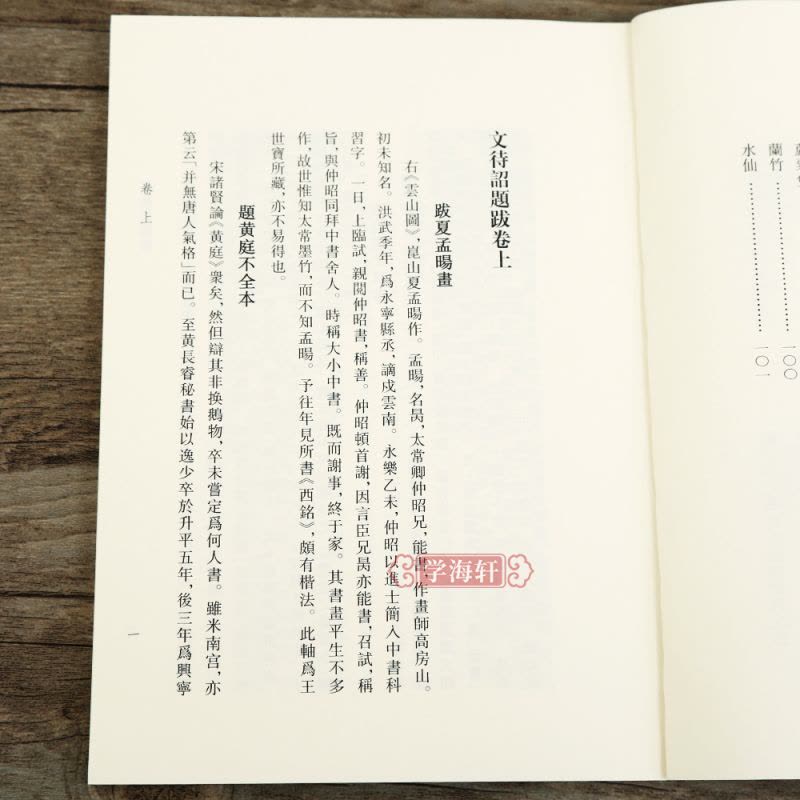 文待詔題跋卷上
跋夏孟暘畫
右《雲山圖》，崑山夏孟暘作。孟暘，名昺，太常卿仲昭兄，能書，作畫師高房山。
初未知名。洪武季年，爲永寧縣丞，謫戍雲南。永樂乙未，仲昭以進士簡入中書科
習字。一日，上臨試，親閱仲昭書，稱善。仲昭頓首謝，因言臣兄昺亦能書，召試，稱
旨，與仲昭同拜中書舍人。時稱大小中書。既而謝事，終于家。其書畫平生不多
作，故世惟知太常墨竹，而不知孟暘。予往年見所書《西銘》，頗有楷法。此軸爲王
世寶所藏，亦不易得也。
題黃庭不全本
宋諸賢論《黃庭》衆矣，然但辯其非換鵝物，卒未嘗定爲何人書。雖米南宮，亦
第云「并無唐人氣格」而已。至黃長睿秘書始以逸少卒於升平五年，後三年爲興寧
卷上
一
蘭竹……一〇〇
水仙……一〇一
学海轩